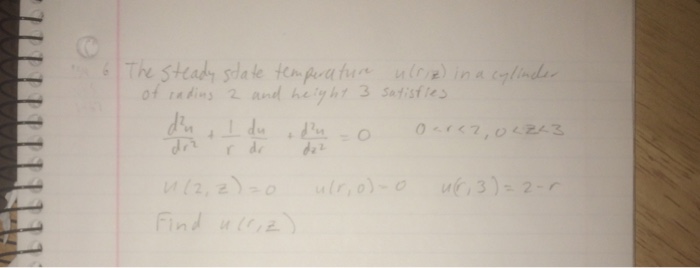 6 The steady state temperature u(r,z) in a cylinder
of radius 2 and height 3 satisfies
d²u/dr² + 1/r du/dr + d²u/dz² = 0 0<r<2, 0<z<3
u(2, z) = 0 u(r, 0) = 0 u(r, 3) = 2-r
Find u(r, z)